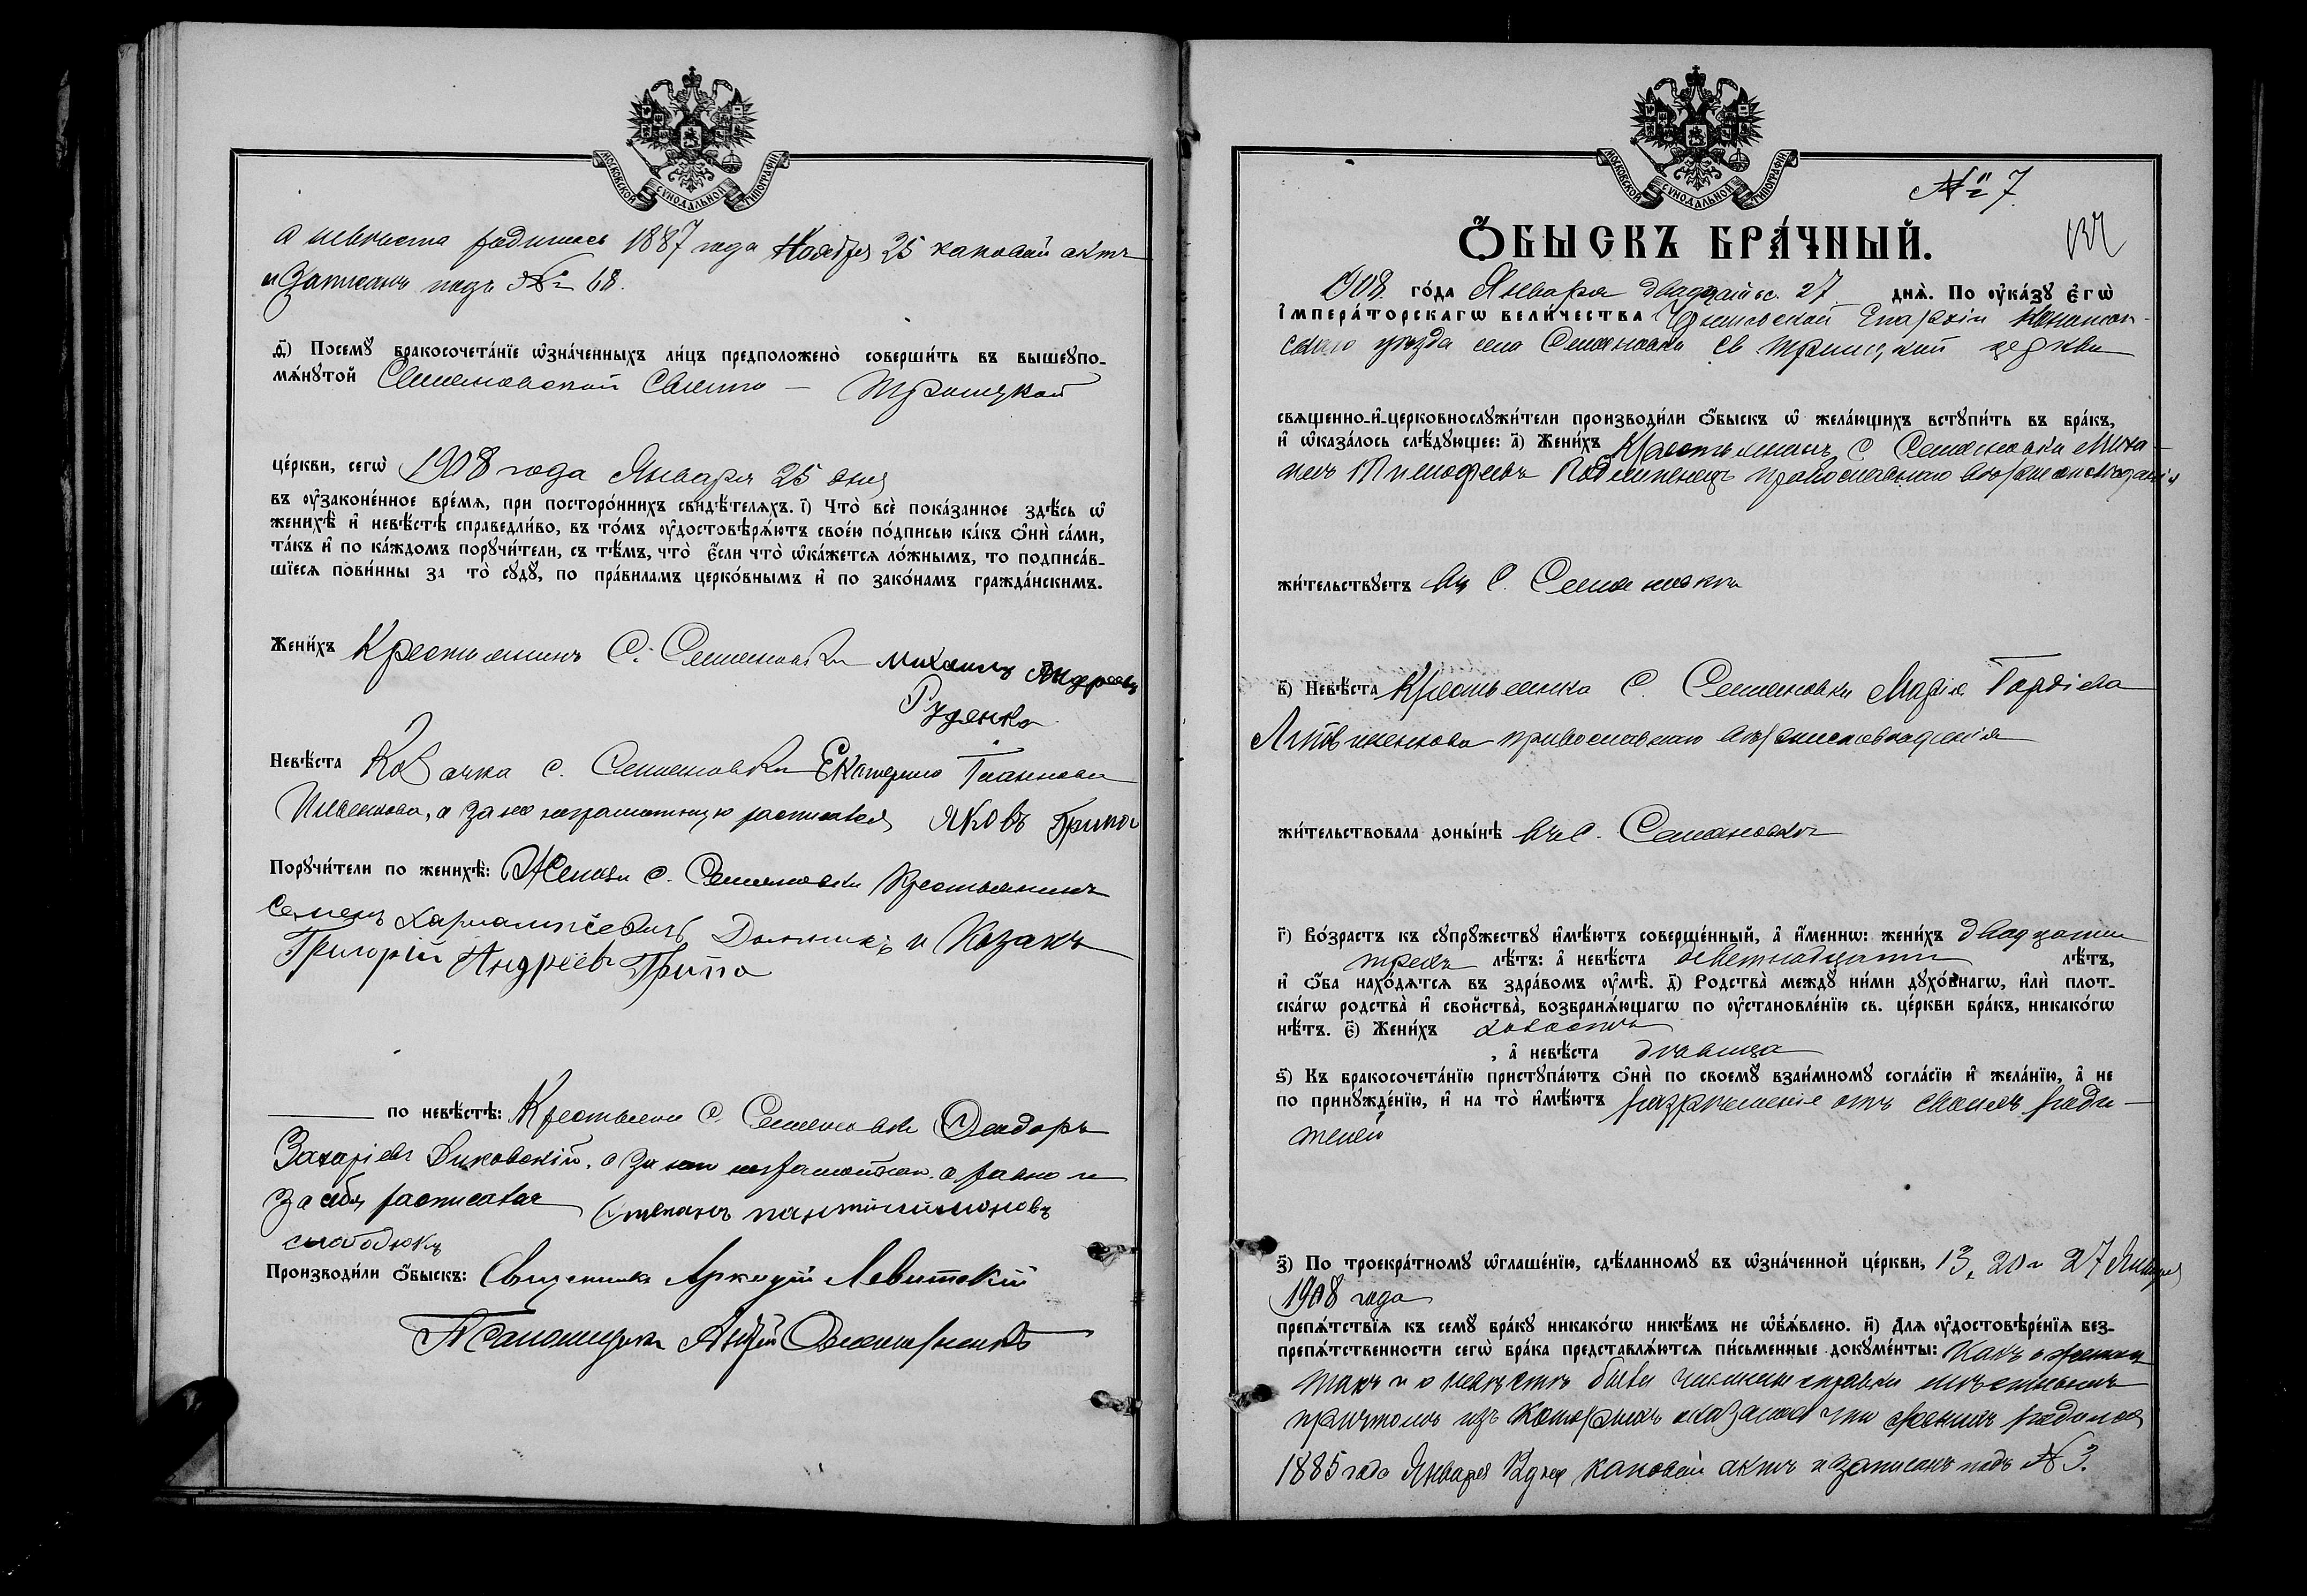 МОСКОВСКОЙ СѴНОДАЛЬНОЙ ТИПОГРАФІИ
а невѣста родилась 1887 года Ноября 25 каковой актъ
и записанъ подъ № 68.
д҃) Посемꙋ̀ бракосочета́нїе ѡ҆зна́ченныхъ ли́цъ предположено̀ соверши́ть въ вышеꙋпо-
мѧ́нꙋтой Семеновской Свято - Троицкой
це́ркви, сегѡ̀ 1908 года Января 25 дня
въ ᲂу҆законе́нное вре́мѧ, при посторо́ннихъ свидѣ́телѧхъ. і҃) Что̀ всѐ пока́занное здѣ́сь ѡ҆
женихѣ̀ и҆ невѣ́стѣ справедли́во, въ то́мъ ᲂу҆достовѣрѧ́ютъ свое́ю по́дписью ка́къ ѻ҆нѝ са́ми,
та́къ и҆ по ка́ждомъ порꙋчи́тели, съ тѣ́мъ, что̀ є҆́сли что̀ ѡ҆ка́жетсѧ ло́жнымъ, то подписа́в-
шїесѧ пови́нны за то̀ сꙋдꙋ̀, по пра́виламъ церко́внымъ и҆ по зако́намъ гражда́нскимъ.
Жени́хъ Крестьянинъ С. Семеновки Михаилъ Андреевъ
Руденко
Невѣ́ста Козачка с. Семеновки Екатерина Иванова
а за нее неграмотную расписался Яковъ Грипа
Порꙋчи́тели по женихѣ̀: Жениха с. Семеновки Крестьянинъ
Семенъ Харлампіевичъ и Козакъ
Григорій Андреевъ Грипа
по невѣ́стѣ: Крестьяне С. Семеновки Ѳеодоръ
Захаріевъ а за него неграмотнаго а равно и
за себя расписался Степанъ Пантилимоновъ
Слободюкъ
Производи́ли ѻ҆́быскъ: Священникъ Аркадій Левитскій
Псаломщикъ
МОСКОВСКОЙ СѴНОДАЛЬНОЙ ТИПОГРАФІИ
№ 7.
Ѻ҆́БЫСКЪ БРА́ЧНЫЙ.
1908. го́да Января двадцать с. 27 днѧ̀. По ᲂу҆ка́зꙋ є҆гѡ̀
і҆мпера́торскагѡ вели́чества Епархіи Конотоп-
скаго уѣзда села Семеновки Св Троицкой церкви
свѧщенно-и҆-церковнослꙋжи́тели производи́ли ѻ҆́быскъ ѡ҆ жела́ющихъ встꙋпи́ть въ бра́къ,
и҆ ѡ҆каза́лось слѣ́дꙋющее: а҃) Жени́хъ Крестьянинъ С Семеновки Миха-
илъ Тимофеевъ православнаго вѣроисповѣданія
жи́тельствꙋетъ въ С. Семеновки
в҃) Невѣ́ста Крестьянка С. Семеновки Марія Гордіева
Литвиненкова православнаго вѣроисповѣданія
жи́тельствовала доны́нѣ въ С. Семеновкѣ
г҃) Во́зрастъ къ сꙋпрꙋ́жествꙋ и҆мѣ́ютъ соверше́нный, а҆ и҆́меннѡ: жени́хъ двадцати
трехъ лѣ́тъ: а҆ невѣ́ста девятнадцати лѣ́тъ,
и҆ ѻ҆́ба нахо́дѧтсѧ въ здра́вомъ ᲂу҆мѣ̀. д҃) Родства̀ междꙋ ни́ми дꙋхо́внагѡ, и҆лѝ плот-
ска́гѡ родства̀ и҆ свойства̀, возбранѧ́ющагѡ по ᲂу҆становле́нїю св. це́ркви бра́къ, никако́гѡ
нѣ́тъ. є҃) Жени́хъ холостъ
, а҆ невѣ́ста дѣвица
ѕ҃) Къ бракосочета́нїю пристꙋпа́ютъ ѻ҆нѝ по своемꙋ̀ взаи́мномꙋ согла́сїю и҆ жела́нїю, а҆ не
по принꙋжде́нїю, и҆ на то̀ и҆мѣ́ютъ разрѣшеніе отъ своихъ роди-
телей
з҃) По троекра́тномꙋ ѡ҆глаше́нїю, сдѣ́ланномꙋ въ ѡ҆зна́ченной це́ркви, 13, 20 и 27 Января
1908 года
препѧ́тствїѧ къ семꙋ̀ бра́кꙋ никако́гѡ никѣ́мъ не ѡ҆б̾ѧ́влено. и҃) Длѧ ᲂу҆достовѣре́нїѧ без-
препѧ́тственности сегѡ̀ бра́ка представлѧ́ютсѧ пи́сьменные докꙋме́нты: Какъ о женихѣ
такъ и о невѣстѣ были чинимы справки мѣстнымъ
причтомъ изъ которыхъ оказалось что женихъ родился
1885 года Января каковой актъ и записанъ подъ № 3.